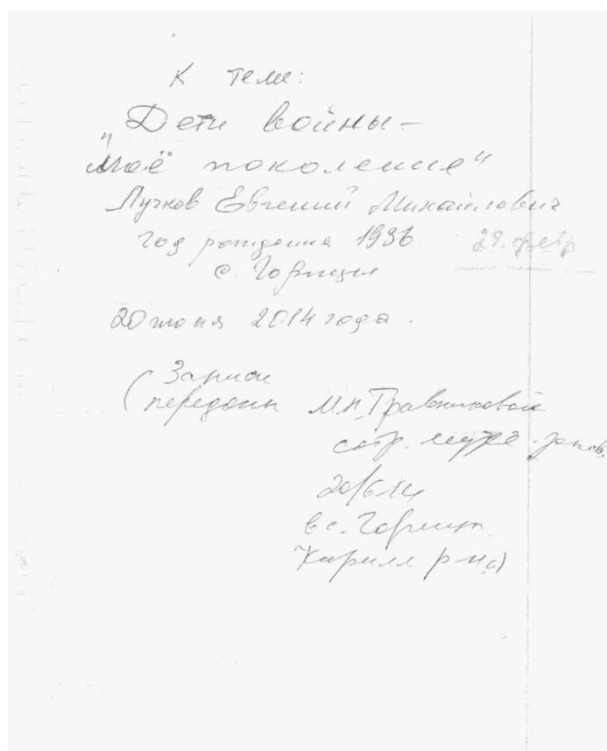 К теме:
„Дети войны–
Моё поколение"
Лучков Евгений Михайлович
год рождения 1936 29. февр
с. Горицы
20 июня 2014 года.
(Записи
переданы М.Н. Травниковой
сотр. музея-запов.
20/6.14
в с. Гориц.
Кирилл р-на)